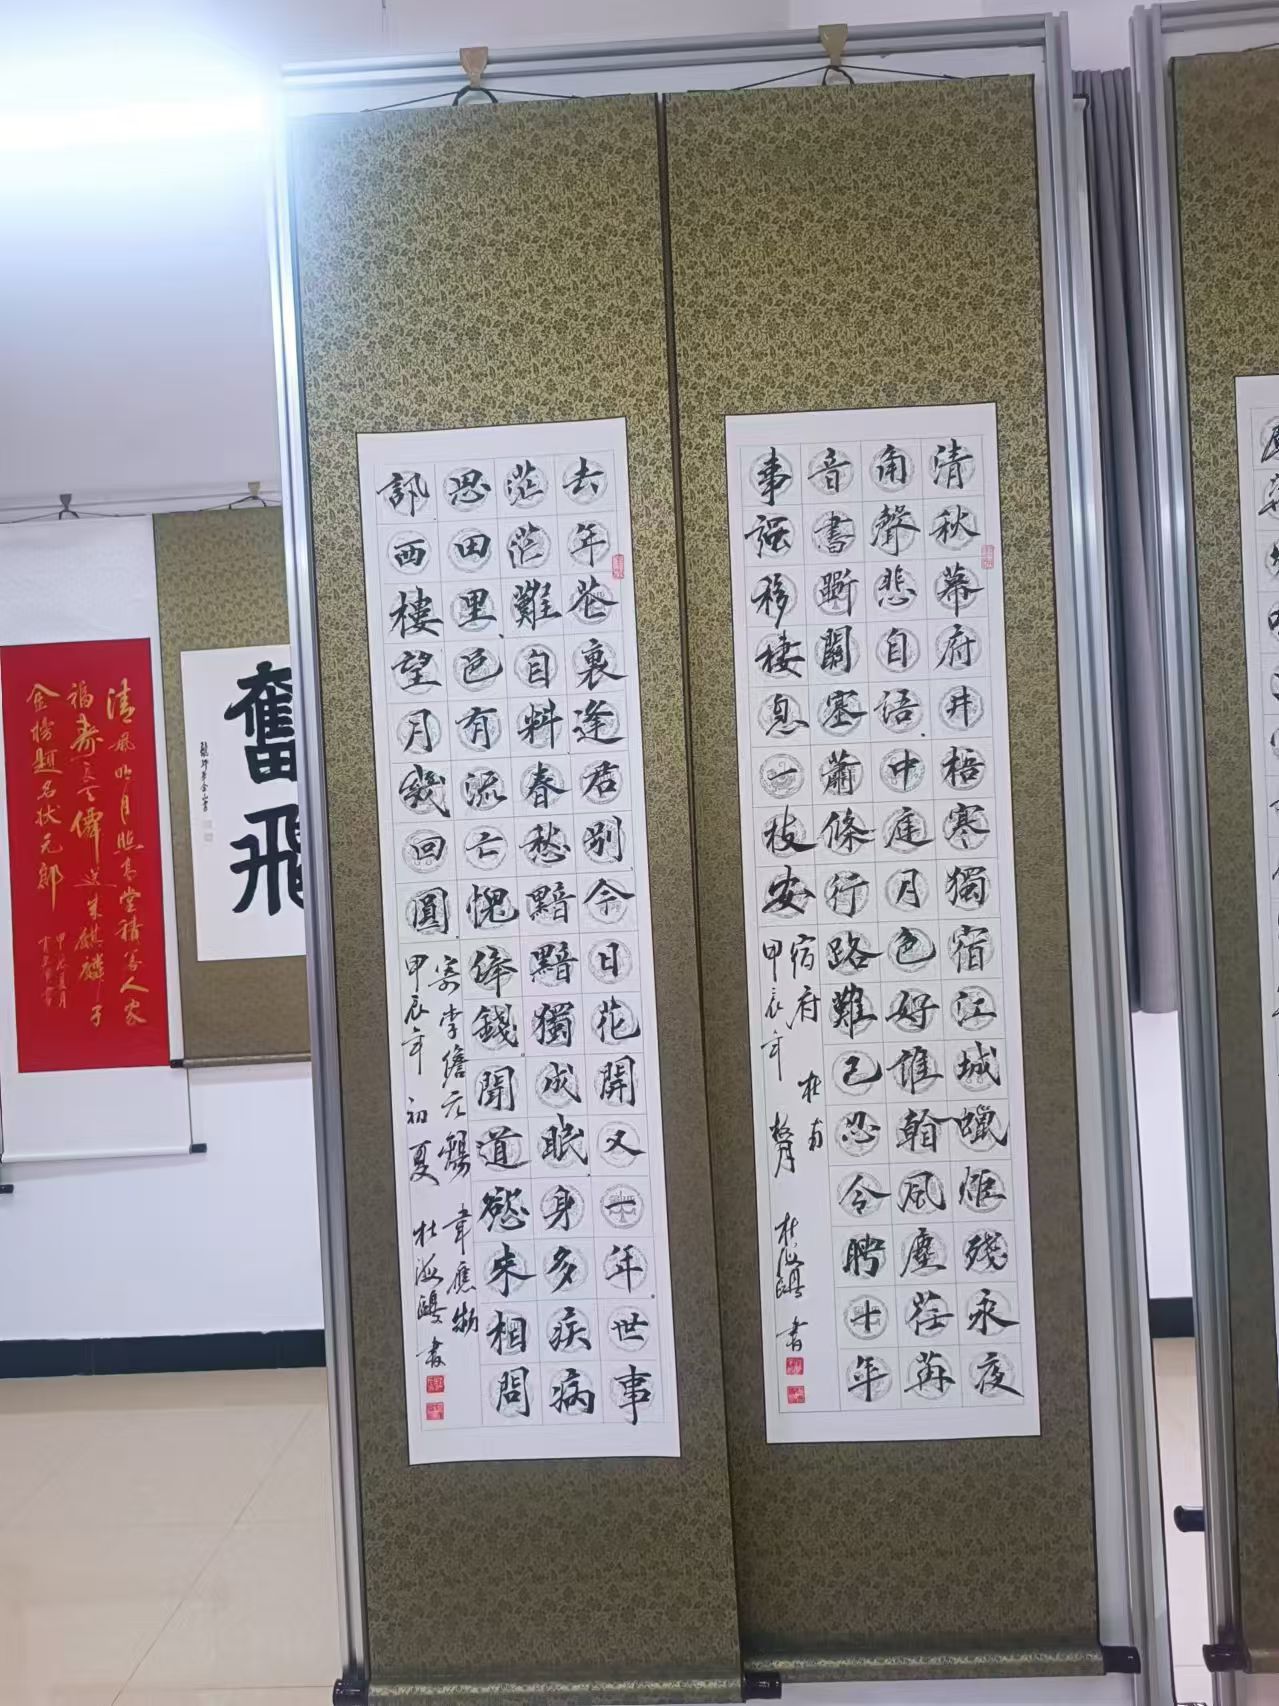 清秋幕府井梧寒獨宿江城蠟炬残永夜
角聲悲自语中庭月色好誰翰風塵荏苒
音書斷關塞蕭條行路難已忍令聘十年
事强移棲息一枝安
宿府 杜甫
甲辰年 杜海鷗 書
去年花裏逢君别今日花開又一年世事
茫茫難自料春愁黯黯獨成眠身多疾病
思田里邑有流亡愧俸錢聞道慾来相問
訊西樓望月幾回圓
寄李儋元錫 韋應物
甲辰年 初夏 杜海鷗 書
奮飛
清風明月照高堂積善人家
福壽長天僊送來麒麟子
金榜題名狀元郎